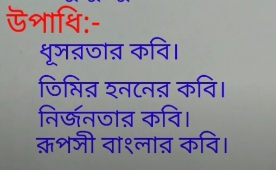 উপাধি:-
ধূসরতার কবি।
তিমির হননের কবি।
নির্জনতার কবি।
রূপসী বাংলার কবি।